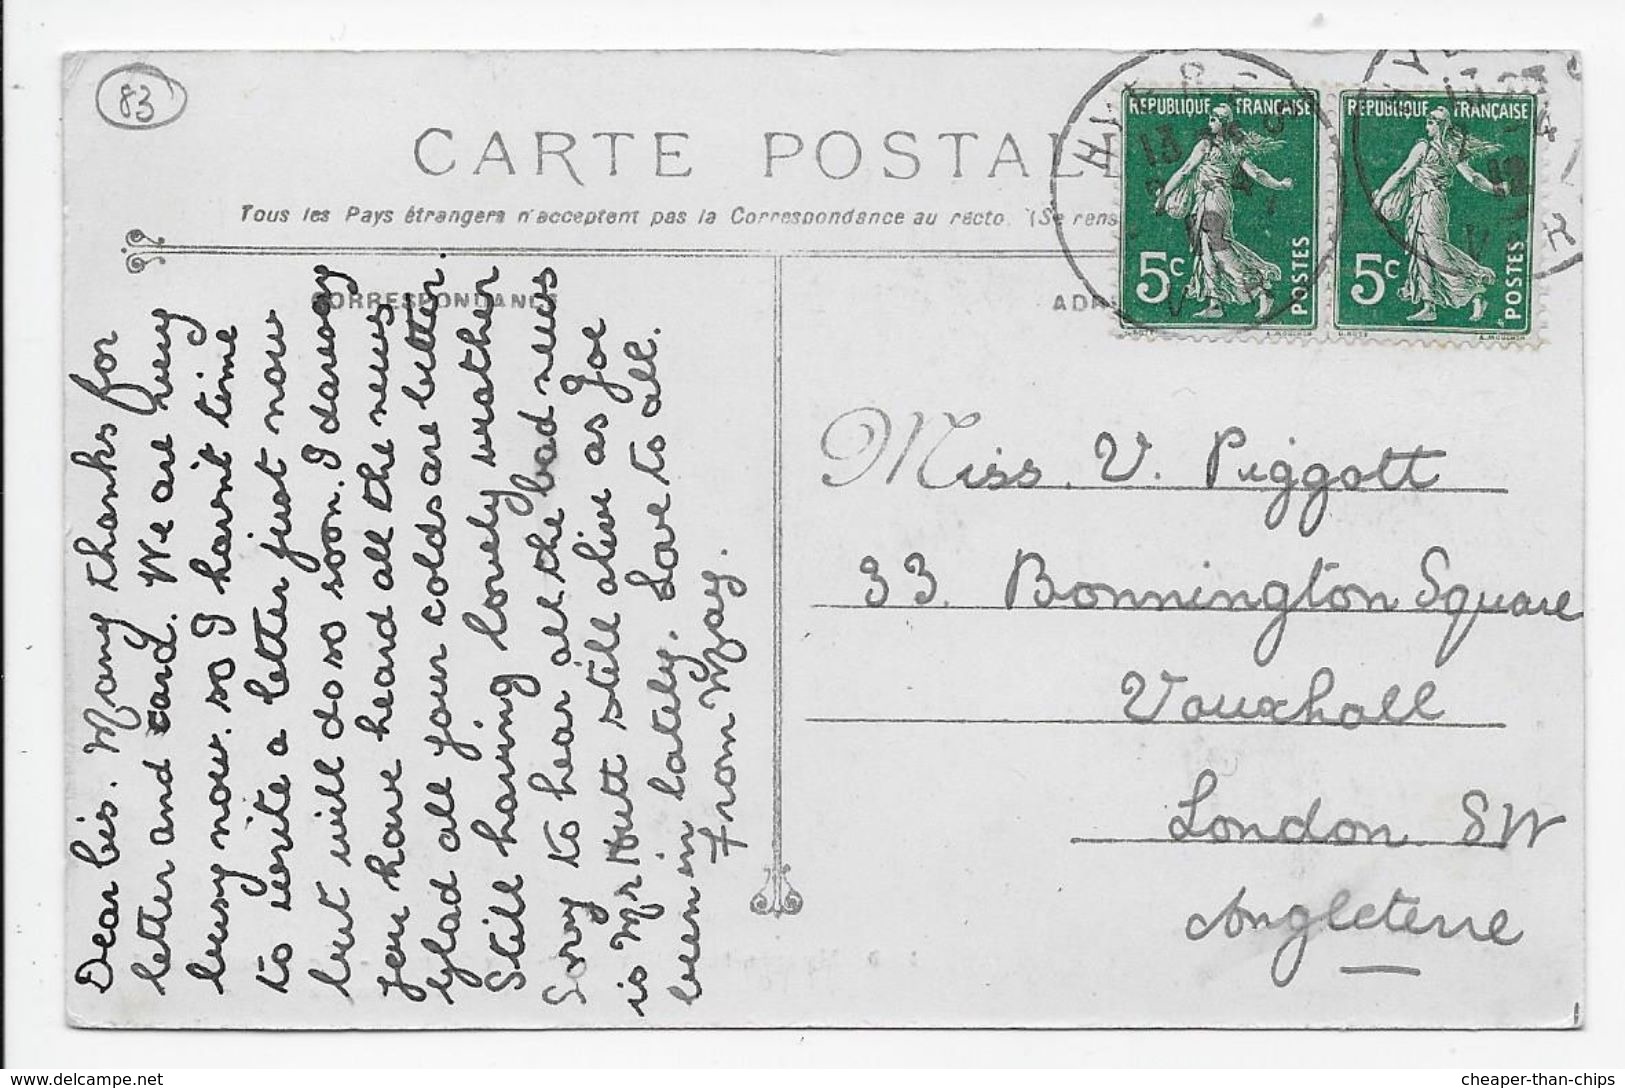 83
CARTE POSTAL
Tous les Pays étrangers n'acceptent pas la Correspondance au recto. (Se rens
CORRESPONDANCE
Dear Lis. Many thanks for
letter and card. We are very
busy now. so I havn't time
to write a letter just now
but will do so soon. I daresay
you have heard all the news
Glad all your colds are better.
Still having lovely weather
Sorry to hear all the bad news
is Mr Hutt still alive as Joe
been in lately. Love to all.
From May.
REPUBLIQUE FRANÇAISE
5c
POSTES
REPUBLIQUE FRANÇAISE
5c
POSTES
HY
13
2 - 4
12
VAR
12
V R
ADR
Miss. V. Piggott
33. Bonnington Square
Vauxhall
London SW
Angleterre
delcampe.net
cheaper-than-chips